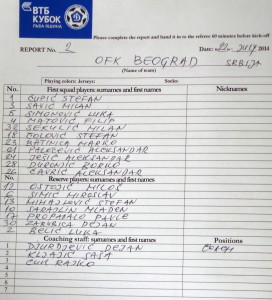 ВТБ
КУБОК
ЛЬВА ЯШИНА
Please complete the report and hand it in to the referee 60 minutes before kick-off
REPORT No. 2 Date: July 2014
OFK BEOGRAD SRBIJA
(Name of team)
Playing colors: Jerseys: Socks:
No. First squad players: surnames and first names Nicknames
1 ČUPIĆ STEFAN
SAVIĆ MILAN
5 SIMONOVIĆ LUKA
4 MATOVIĆ FILIP
SEKULIĆ MILAN
ČOLOVIĆ STEFAN
23 RATINICA MARKO
PALEČEVIĆ ALEKSANDAR
JEŠIĆ ALEKSANDAR
ĐURONJIĆ
GAVRIĆ ALEKSANDAR
No. Reserve players: surnames and first names
12 OSTOJIĆ MILOŠ
SIMIĆ MIROSLAV
13 MIHAJLOVIĆ STEFAN
SARAJLIN MLADEN
17 PROPADALO PAVLE
ZARUBICA DEJAN
2 BELIĆ LUKA
No. Coaching staff: surnames and first names Positions
1 DJURDJEVIĆ DEJAN COACH
2 KLJAJIĆ SAŠA
3 RAJKO
4
5
6
7
8